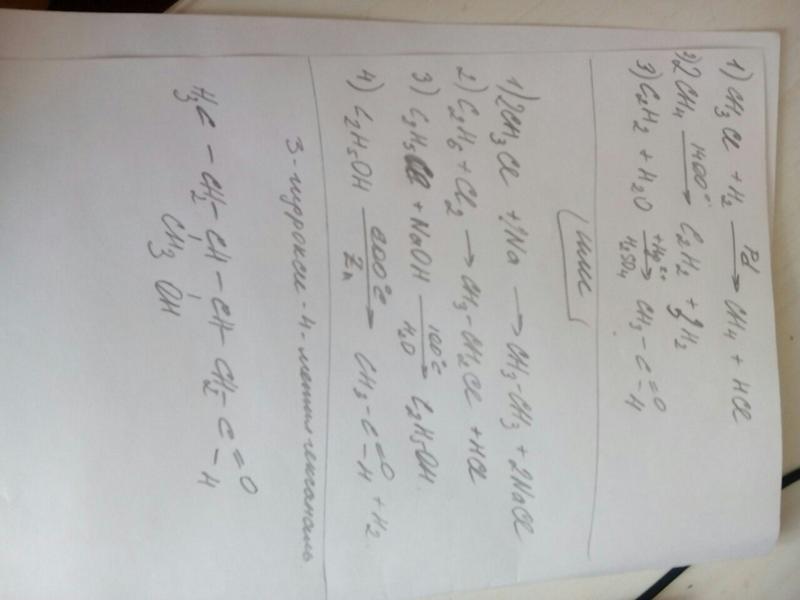 1) CH3Cl + H2 —Pd→ CH4 + HCl
2) 2CH4 —1400°→ C2H2 + 3H2
3) C2H2 + H2O —+Hg2+ H2SO4→ CH3 – C =O – H
(или)
1) 2CH3Cl + 2Na → CH3-CH3 + 2NaCl
2) C2H6 + Cl2 → CH3-CH2Cl + HCl
3) C2H5Cl + NaOH —100°C H2O→ C2H5OH.
4) C2H5OH —200°C Zn→ CH3 – C =O – H + H2.
3-гидрокси-4-метилгексаналь
H3C – CH2 – CH – CH – CH2 – C =O – H
CH3 OH